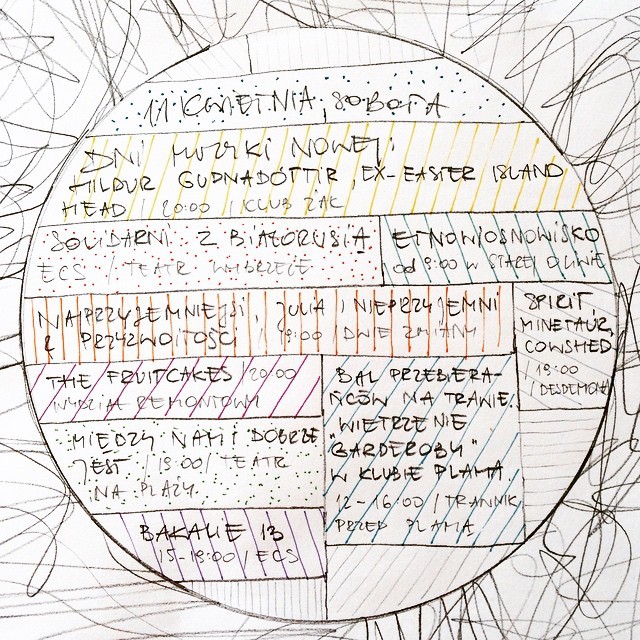 11 KWIETNIA, SOBOTA
DNI MUZYKI NOWEJ:
HILDUR GUDNADÓTTIR, EX-EASTER ISLAND
HEAD / 20:00 / KLUB ŻAK
SOLIDARNI Z BIAŁORUSIĄ
ECS / TEATR WYBRZEŻE
ETNOWIOSNOWISKO
od 9:00 W STAREJ OLIWIE
NAJPRZYJEMNIEJSI, JULIA I NIEPRZYJEMNI
& PRZYZWOITOŚĆ / 19:00 / DWIE ZMIANY
SPIRIT,
MINETAUR,
COWSHED
/ 19:00
/ DESDEMONA
THE FRUITCAKES / 20:00
WYDZIAŁ REMONTOWY
MIĘDZY NAMI DOBRZE
JEST / 19:00 / TEATR
NA PLAŻY
BAL PRZEBIERA-
ŃCÓW NA TRAWIE.
"WIETRZENIE
GARDEROBY"
W KLUBIE PLAMA.
12-16:00 / TRAWNIK
PRZED PLAMĄ
BAKALIE 13
15-19:00 / ECS